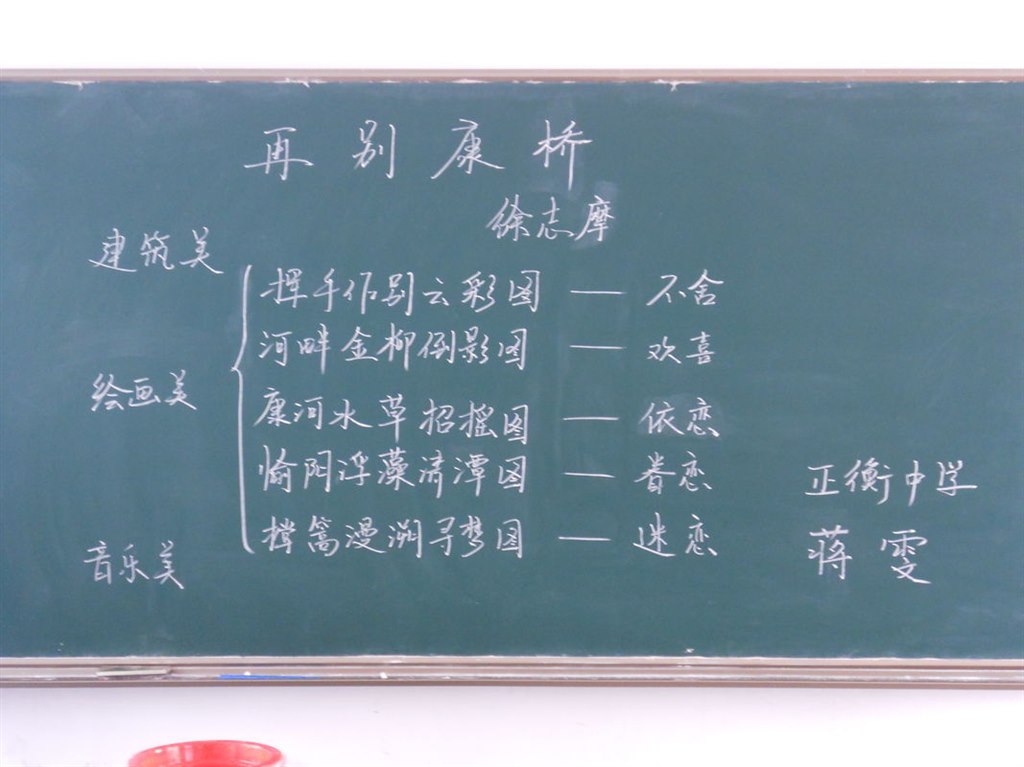 再别康桥
徐志摩
建筑美
挥手作别云彩图 — 不舍
河畔金柳倒影图 — 欢喜
绘画美
康河水草招摇图 — 依恋
榆阴浮藻清潭图 — 眷恋
撑篙漫溯寻梦图 — 迷恋
音乐美
正衡中学
蒋雯